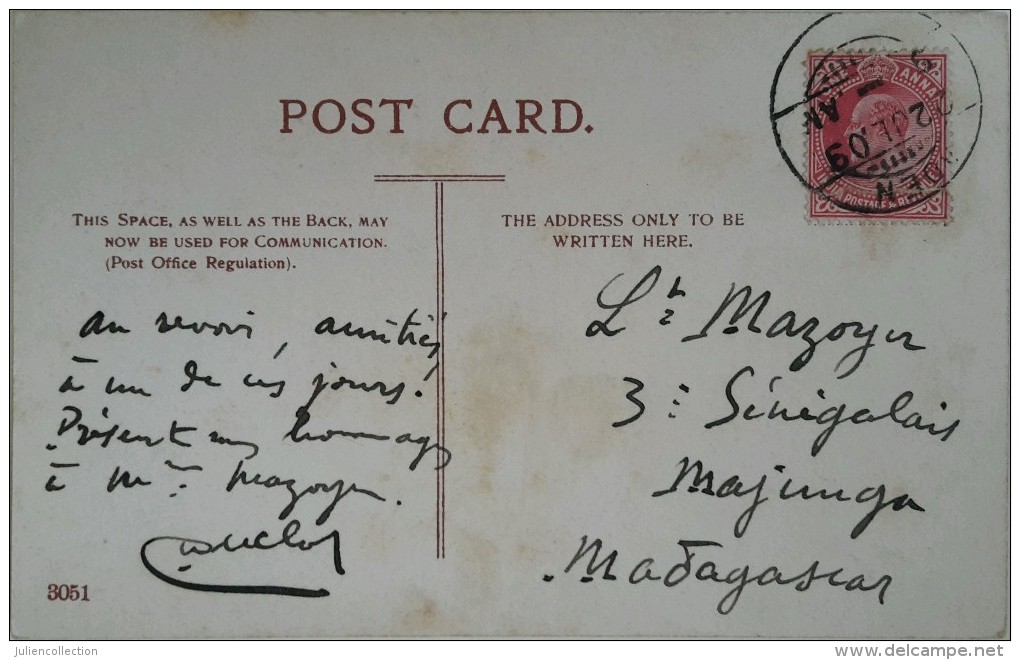 POST CARD.
THIS SPACE, AS WELL AS THE BACK, MAY
NOW BE USED FOR COMMUNICATION.
(Post Office Regulation).
THE ADDRESS ONLY TO BE
WRITTEN HERE.
au revoir, amitiés
à un de ces jours.
Présent mes hommages
à Mme Mazoyer.
3051
Lt Mazoyer
3e Sénégalais
Majunga
Madagascar
ANNA
POSTAGE &
09
Juliencollection
delcampe.net